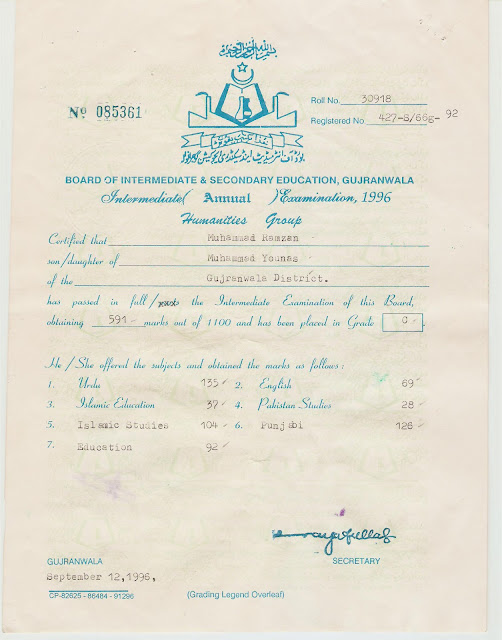 بسم الله الرحمن الرحيم
Nº 085361
Roll No. 30918
Registered No 427-B/66g- 92
BOARD OF INTERMEDIATE & SECONDARY EDUCATION, GUJRANWALA
Intermediate( Annual )Examination, 1996
Humanities Group
Certified that Muhammad Ramzan
son/daughter of Muhammad Younas
of the Gujranwala District.
has passed in full/xxxx the Intermediate Examination of this Board,
obtaining 591 marks out of 1100 and has been placed in Grade C
He/She offered the subjects and obtained the marks as follows :
1. Urdu 135 2. English 69
3. Islamic Education 37 4. Pakistan Studies 28
5. Islamic Studies 104 6. Punjabi 126
7. Education 92
GUJRANWALA SECRETARY
September 12,1996,
CP-82625 - 86484 - 91296 (Grading Legend Overleaf)